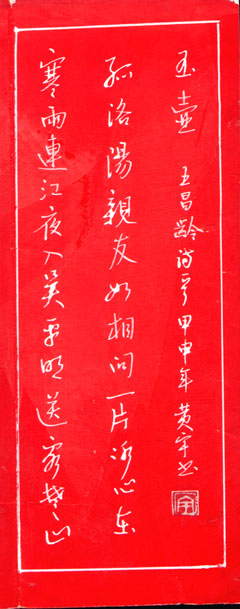 寒雨連江夜入吳平明送客楚山
孤洛陽親友如相問一片冰心在
玉壺 王昌龄诗 甲申年 黄宇书